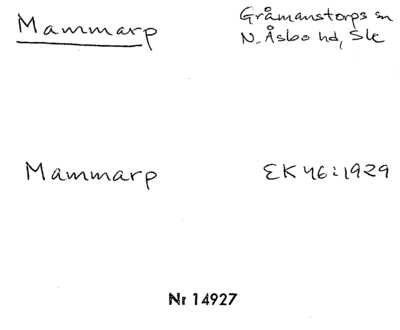 Mammarp
Gråmanstorps sn
N. Åsbo hd, Sk
Mammarp
EK 46:1929
Nr 14927